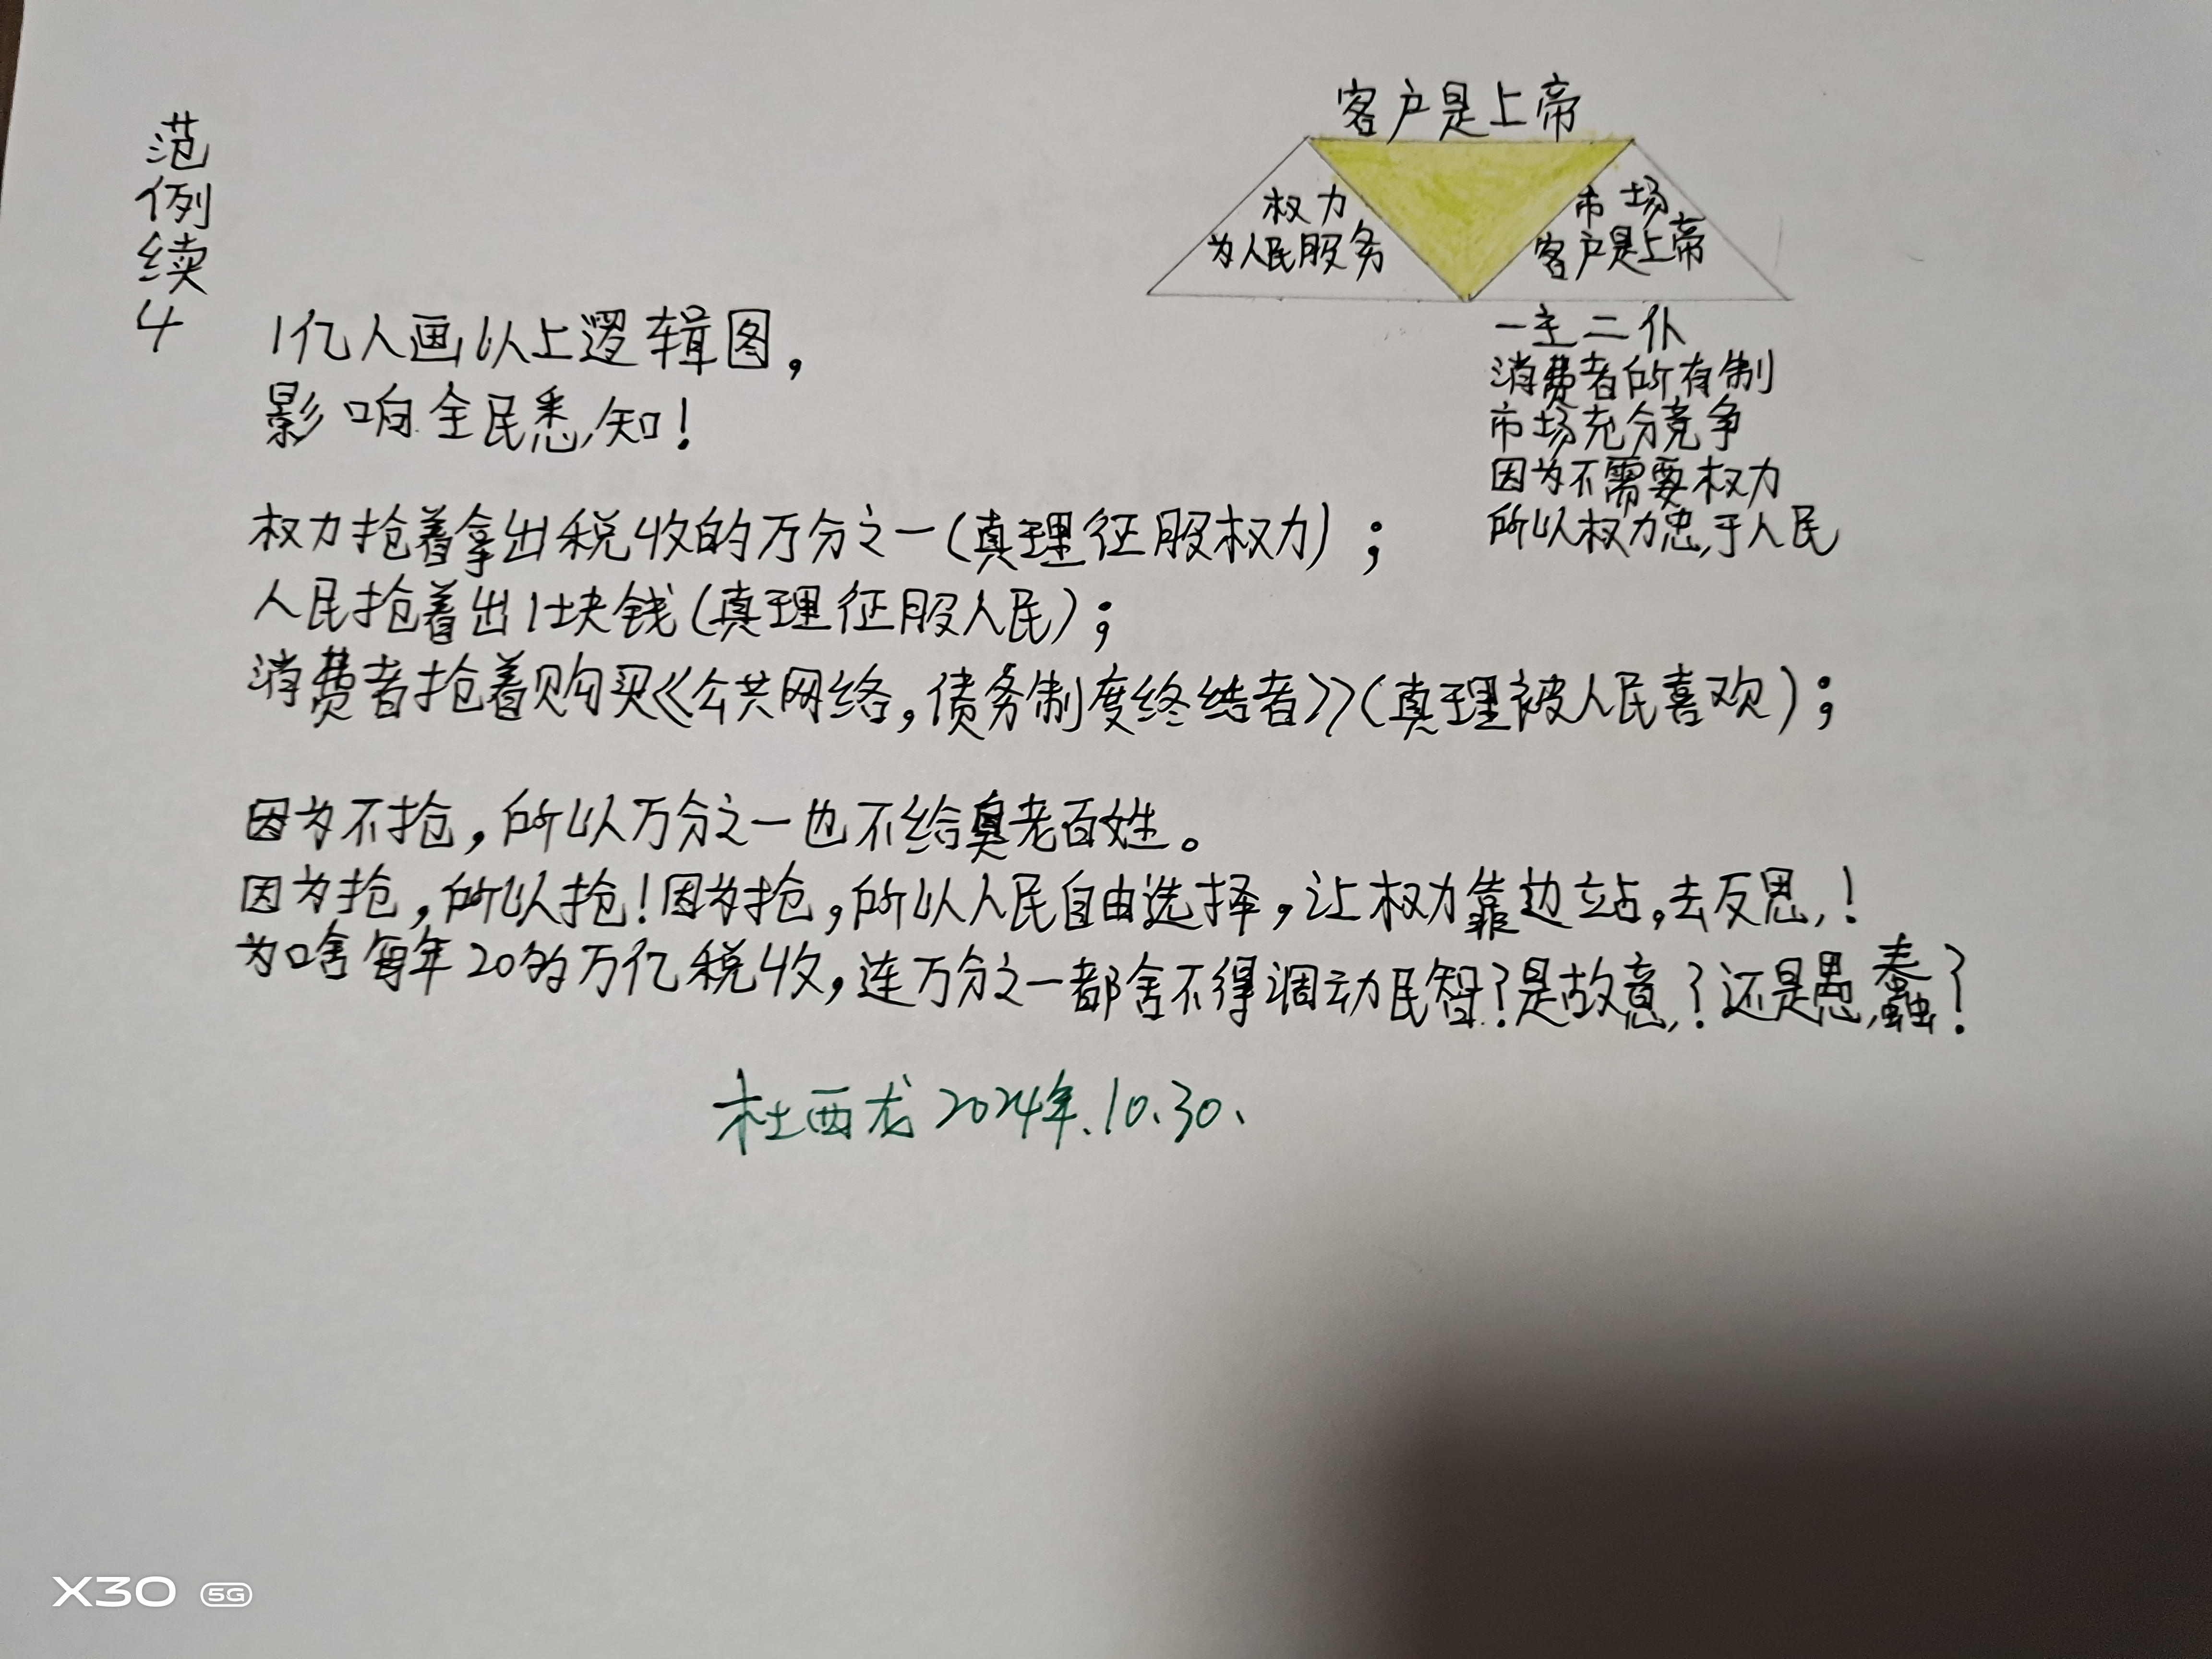 范例续4
客户是上帝
权力
为人民服务
市场
客户是上帝
一主二仆
消费者所有制
市场充分竞争
因为不需要权力
所以权力忠于人民
1亿人画以上逻辑图，
影响全民悉知！
权力抢着拿出税收的万分之一（真理征服权力）；
人民抢着出1块钱（真理征服人民）；
消费者抢着购买《公共网络，债务制度终结者》（真理被人民喜欢）；
因为不抢，所以万分之一也不给臭老百姓。
因为抢，所以抢！因为抢，所以人民自由选择，让权力靠边站，去反思！
为啥每年20的万亿税收，连万分之一都舍不得调动民智？是故意？还是愚蠢？
杜西龙2024年.10.30、
X30 5G